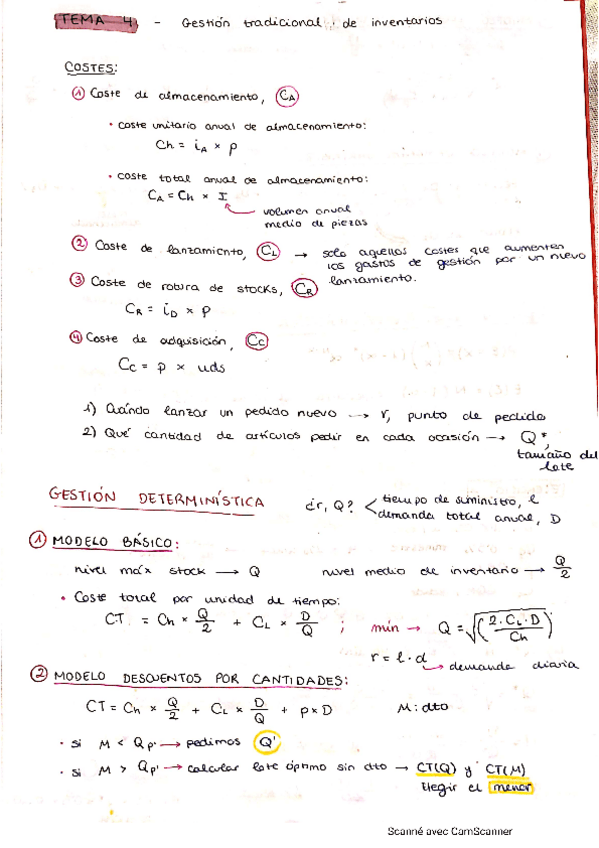 TEMA 4 - Gestión tradicional de inventarios
COSTES:
① Coste de almacenamiento, CA
• coste unitario anual de almacenamiento:
Ch = iA × p
• coste total anual de almacenamiento:
CA = Ch × I
volumen anual
medio de piezas
② Coste de lanzamiento, CL → solo aquellos costes que aumenten
los gastos de gestión por un nuevo
lanzamiento.
③ Coste de rotura de stocks, CR
CR = iD × p
④ Coste de adquisición, Cc
Cc = p × uds
1) Cuándo lanzar un pedido nuevo → r, punto de pedido
2) Qué cantidad de artículos pedir en cada ocasión → Q*,
tamaño del
lote
GESTIÓN DETERMINÍSTICA ¿r, Q? < tiempo de suministro, l
demanda total anual, D
① MODELO BÁSICO:
nivel máx stock → Q nivel medio de inventario → Q/2
• Coste total por unidad de tiempo:
CT = Ch × Q/2 + CL × D/Q ; min → Q = √(2·CL·D/Ch)
r = l · d → demanda diaria
② MODELO DESCUENTOS POR CANTIDADES:
CT = Ch × Q/2 + CL × D/Q + p × D M: dto
• si M < Qp' → pedimos Q'
• si M > Qp' → calcular lote óptimo sin dto → CT(Q) y CT(M)
Elegir el menor
Scanné avec CamScanner